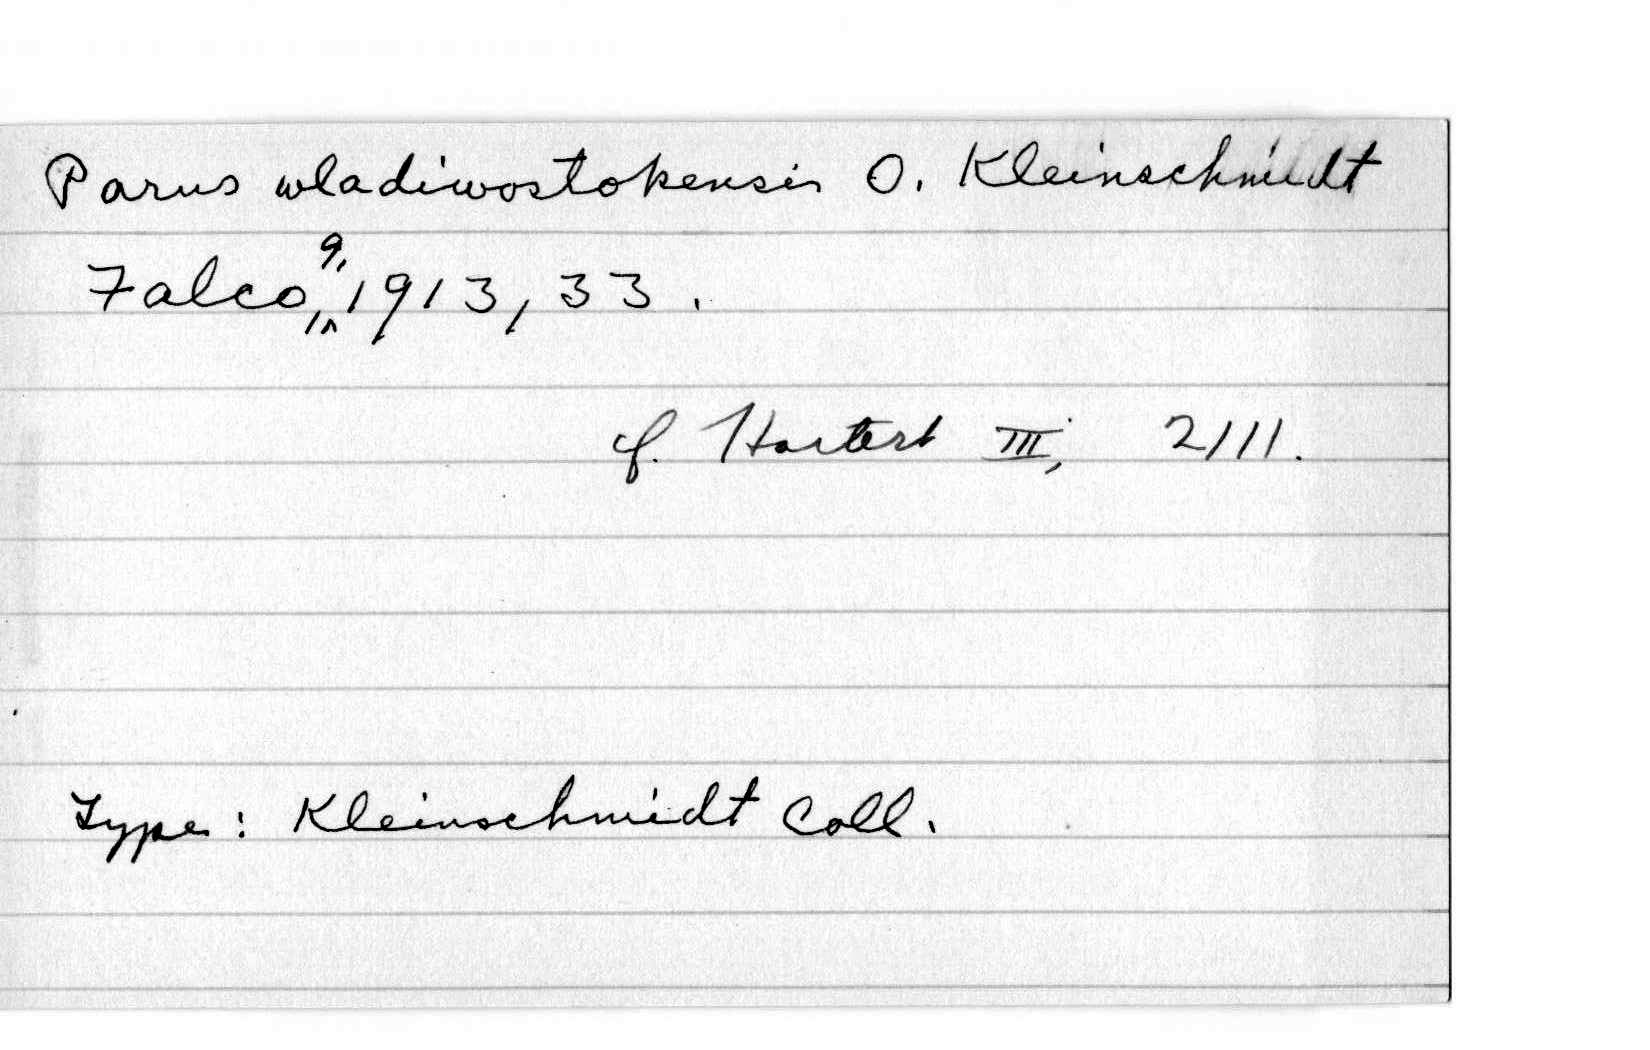 Parus wladiwostokensis O. Kleinschmidt
Falco, 9, 1913, 33.
cf. Hartert III, 2111.
Type: Kleinschmidt Coll.